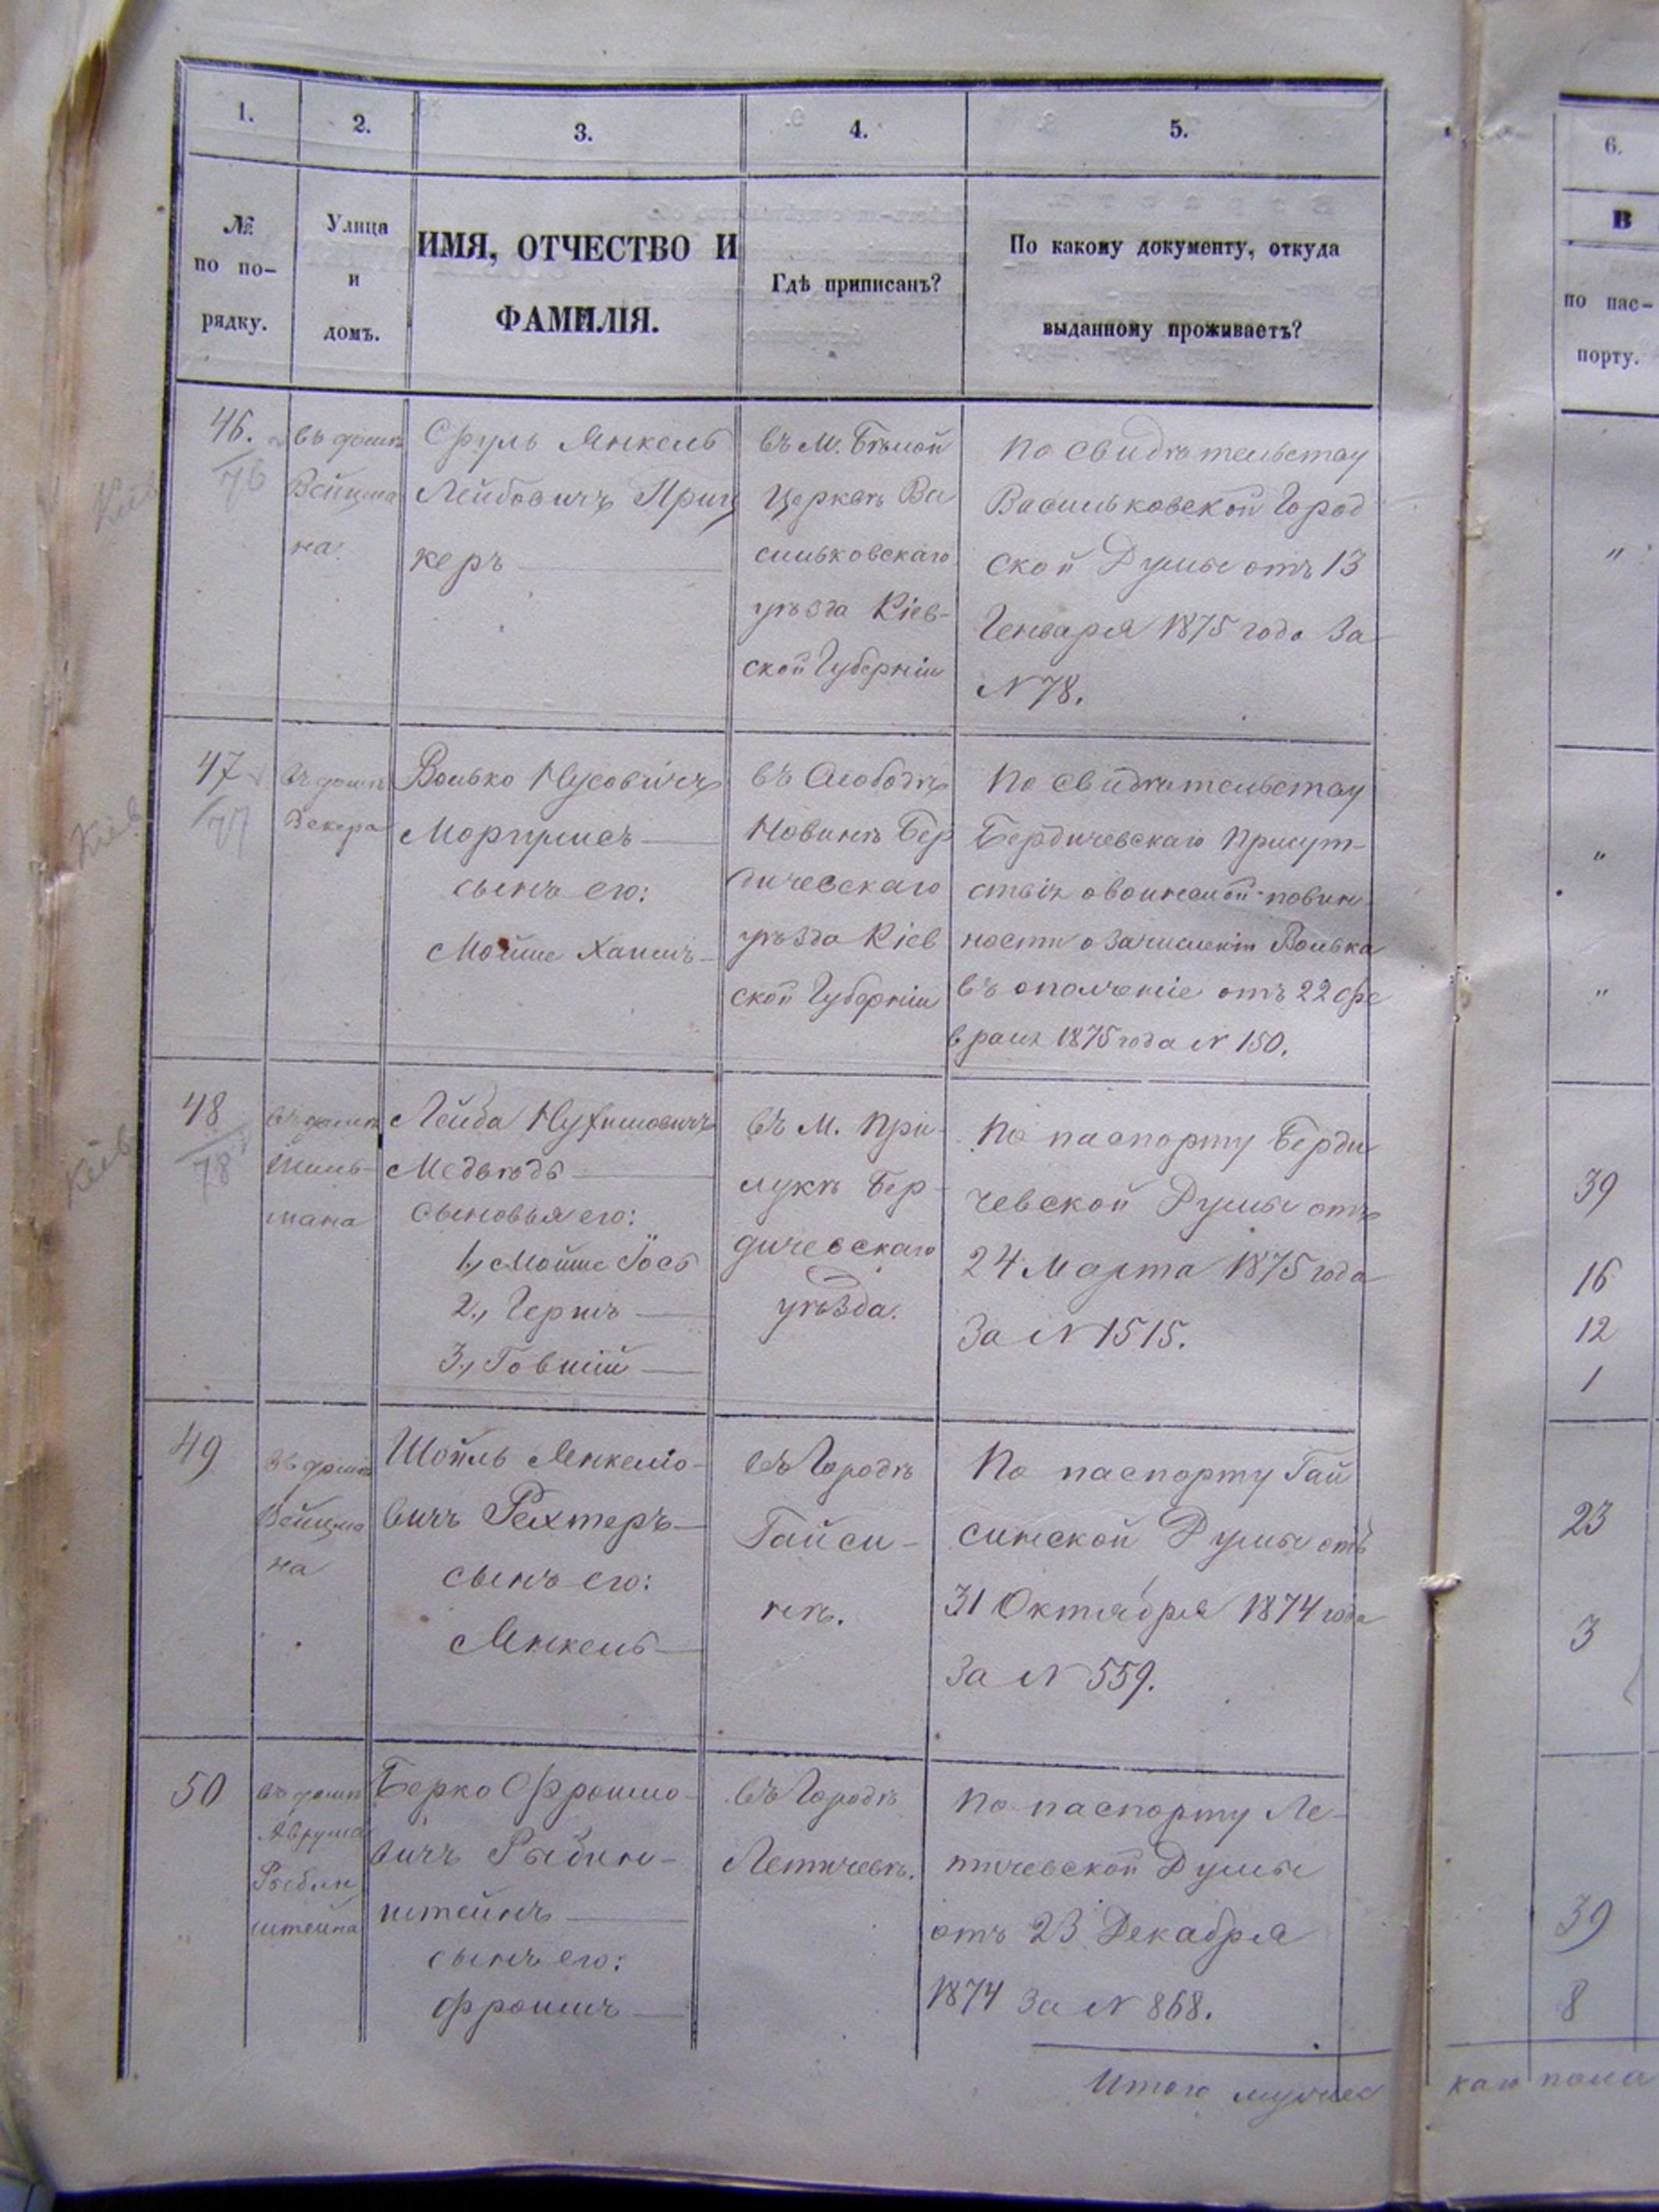 1.
2.
3.
4.
5.
6.
№
по по-
рядку.
Улица
и
домъ.
ИМЯ, ОТЧЕСТВО И
ФАМИЛІЯ.
Гдѣ приписанъ?
По какому документу, откуда
выданному проживаетъ?
В
по пас-
порту.
46.
76
Кіев
въ домѣ
Вейцма
на
Сруль Янкель
Лейбовичъ Приц
керъ
въ М. Бѣлой
Церкви Ва
сильковскаго
уѣзда Кіев-
ской Губерніи
По свидѣтельству
Васильковской Город
ской Думы отъ 13
Генваря 1875 года за
N 78.
"
47
77
Кіев
въ домѣ
Декера
Волько Нусовичъ
Моргулисъ
сынъ его:
Мойше Хаимъ
въ Слободѣ
Новинѣ Бер
дичевскаго
уѣзда Кіев
ской Губерніи
По свидѣтельству
Бердичевскаго Присут-
ствія о воинской повин
ности о зачисленіи Волька
въ ополченіе отъ 22 Фе
враля 1875 года N 150.
"
"
48
78
Кіев
въ домѣ
мана
Лейба Нухимовичъ
Медвѣдь
сыновья его:
1., Мойше Іось
2., Гершъ
3., Говшій
въ М. При-
лукѣ Бер-
дичевскаго
уѣзда.
По паспорту Берди
чевской Думы отъ
24 Марта 1875 года
за N 1515.
39
16
12
1
49
въ домѣ
Вейцма
на
Шойль Янкеліо-
вичъ Рехтеръ
сынъ его:
Янкель
въ Городѣ
Гайси-
нѣ.
По паспорту Гай
синской Думы отъ
31 Октября 1874 года
за N 559.
23
3
50
въ домѣ
Аврума
Рыбин
штейна
Берко Фроимо-
вичъ Рыбин-
штейнъ
сынъ его:
Фроимъ
въ Городѣ
Летичевѣ.
По паспорту Ле-
тичевской Думы
отъ 23 Декабря
1874 за N 868.
39
8
Итого мужес
каго пола